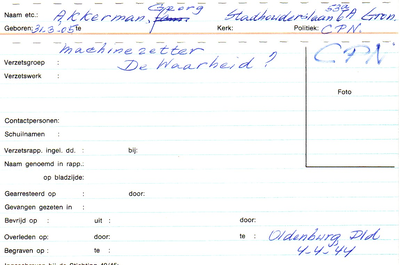 Georg 53a
Naam etc.: Akkerman, Stadhouderslaan 6A Gron.
Geboren: 31-3-05 Te Kerk: Politiek: C.P.N.
machinezetter CPN
Verzetsgroep : De Waarheid ?
Verzetswerk :
Foto
Contactpersonen:
Schuilnamen :
Verzetsrapp. ingel. dd. : bij:
Naam genoemd in rapp.:
op bladzijde:
Gearresteerd op : door:
Gevangen gezeten in :
Bevrijd op : uit : door:
Overleden op: door: te : Oldenburg Dld
Begraven op : te : 4-4-44